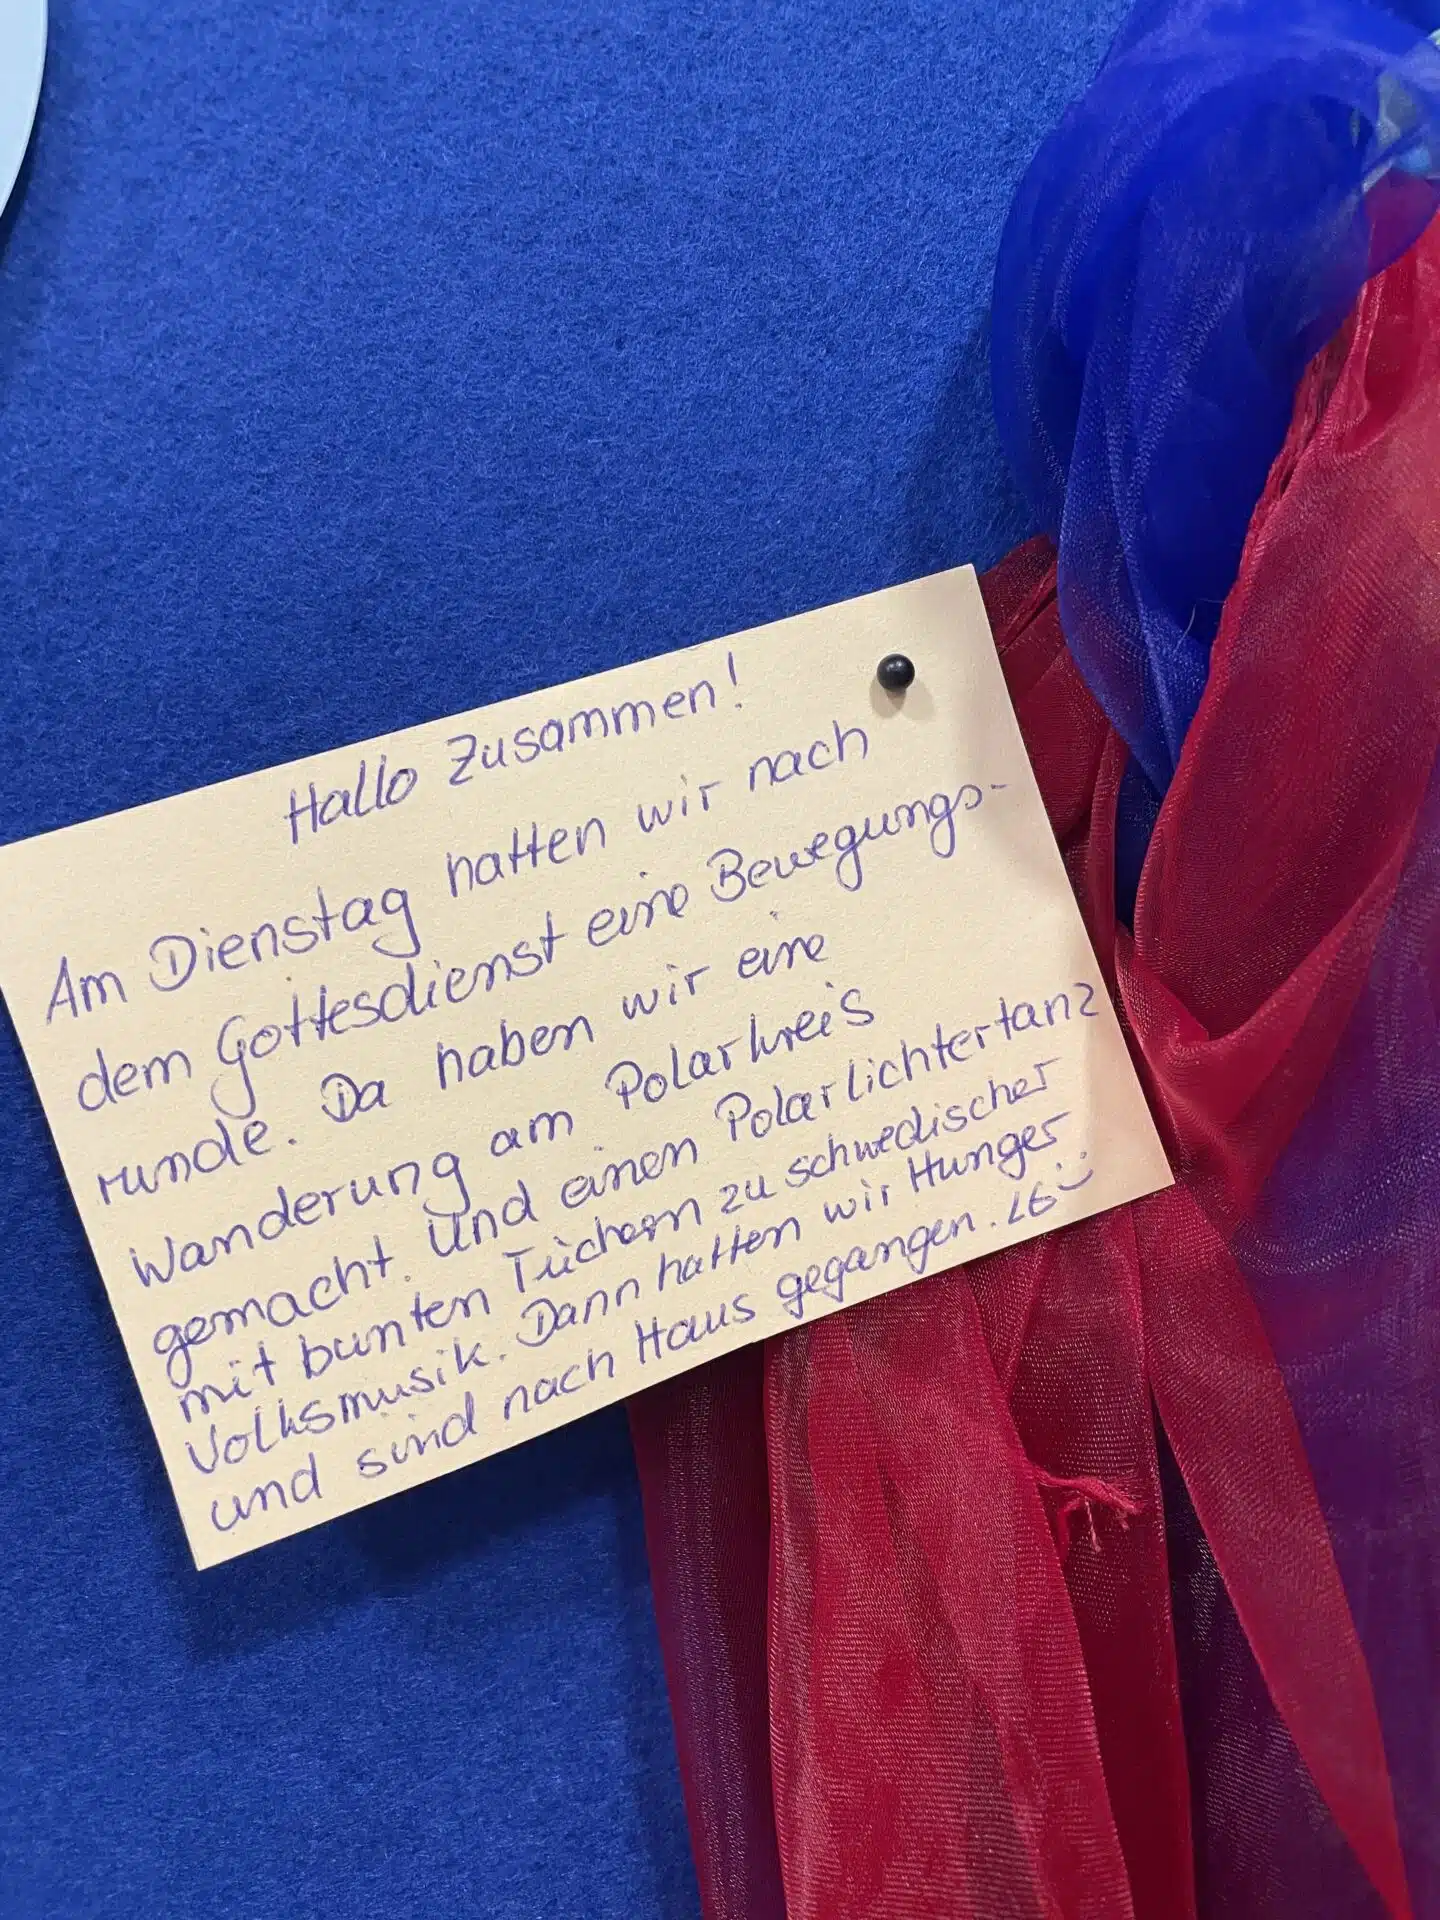 Hallo Zusammen!
Am Dienstag hatten wir nach
dem Gottesdienst eine Bewegungs-
runde. Da haben wir eine
Wanderung am Polarkreis
gemacht. Und einen Polarlichtertanz
mit bunten Tüchern zu schwedischer
Volksmusik. Dann hatten wir Hunger
und sind nach Haus gegangen. LG